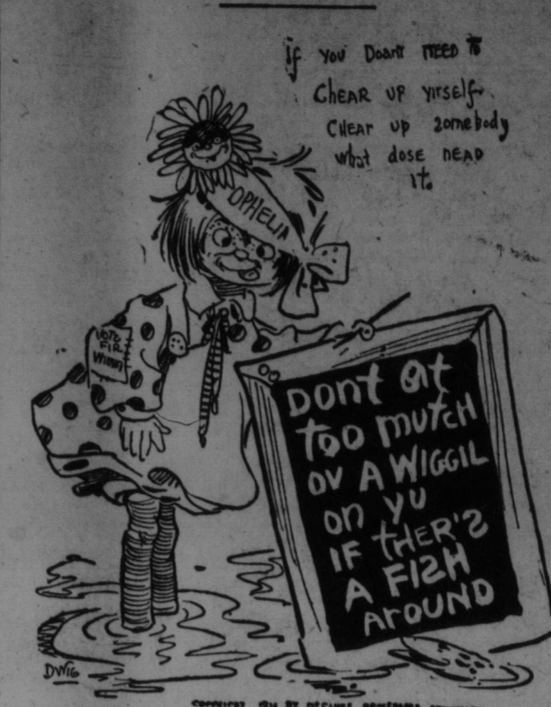 if you Doant NEED to
CHEAR UP yirself
CHEAR UP somebody
what dose NEAD
it.
OPHELIA
VOTE
FIR
DONT Gt
too mutCH
OV A WIGGIL
ON yU
IF tHER'S
A FISH
AROUND
DWIG